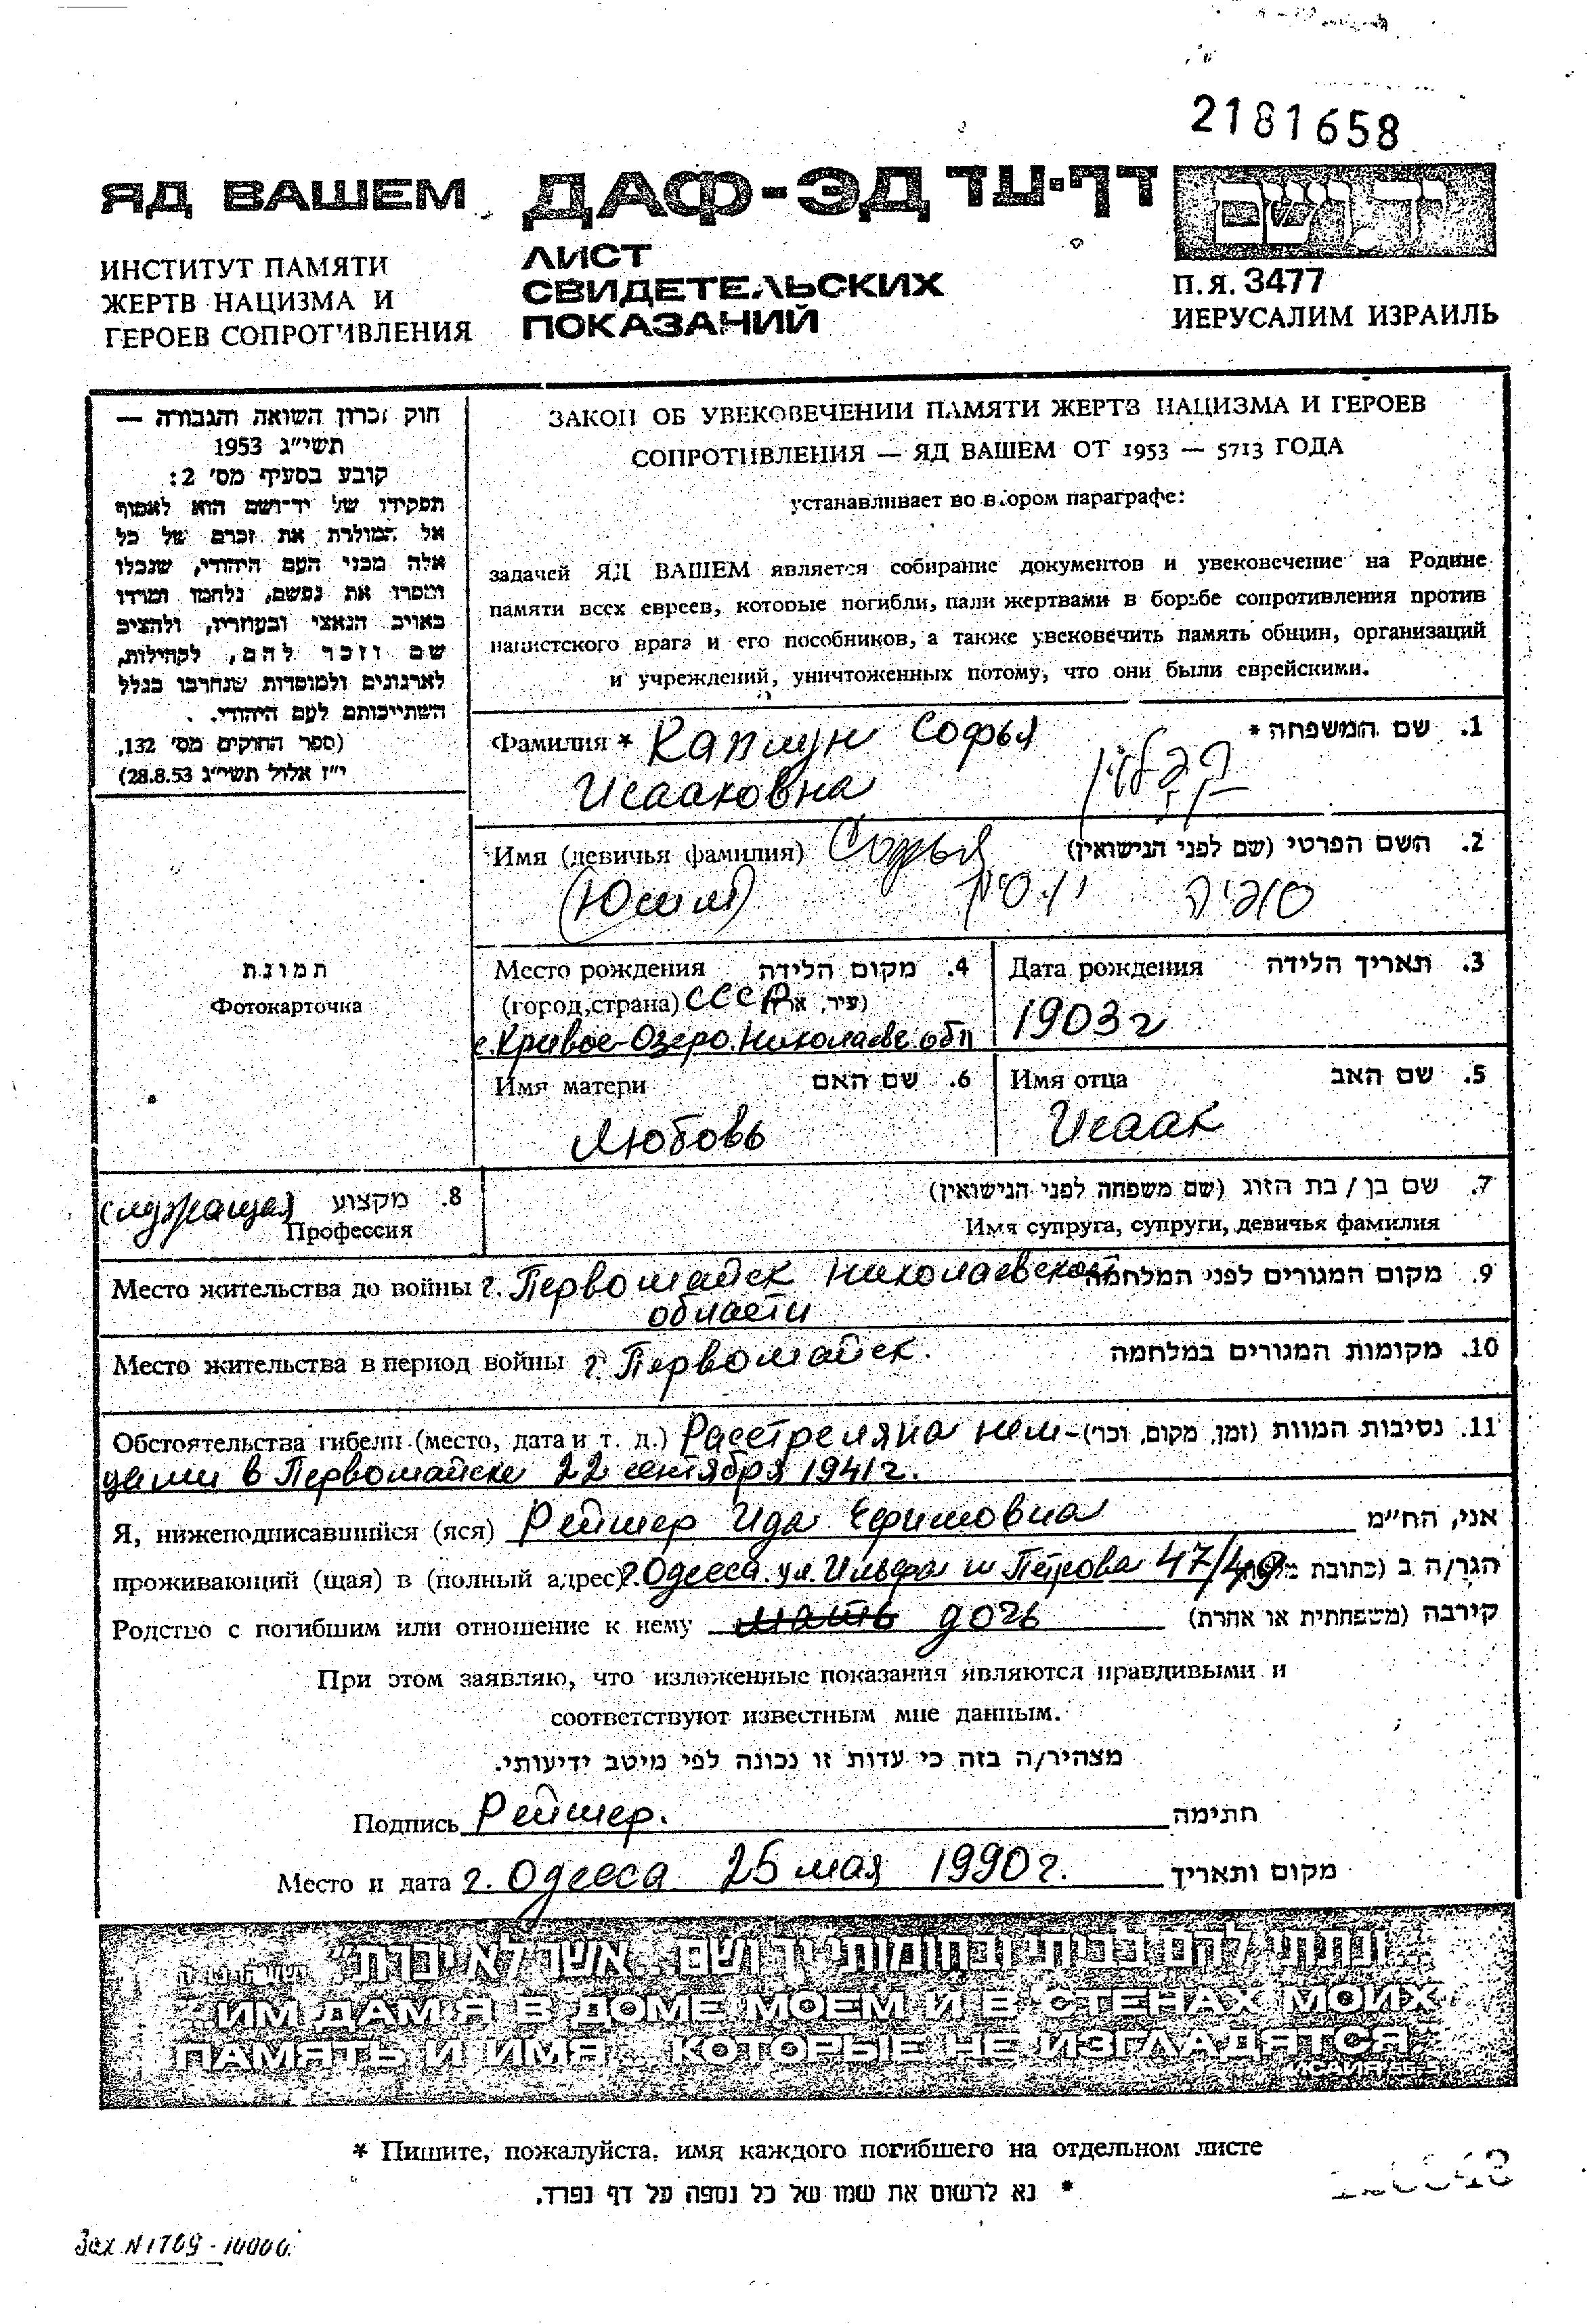 2181658
ЯД ВАШЕМ ДАФ-ЭД דף-עד יד ושם
ИНСТИТУТ ПАМЯТИ
ЖЕРТВ НАЦИЗМА И
ГЕРОЕВ СОПРОТИВЛЕНИЯ
ЛИСТ
СВИДЕТЕЛЬСКИХ
ПОКАЗАНИЙ
П.Я. 3477
ИЕРУСАЛИМ ИЗРАИЛЬ
חוק זכרון השואה והגבורה —
תשי״ג 1953
קובע בסעיף מס׳ 2:
תפקידו של יד־ושם הוא לאסוף
אל המולדת את זכרם של כל
אלה מבני העם היהודי, שנפלו
ומסרו את נפשם, נלחמו ומרדו
באויב הנאצי ובעוזריו, ולהציב
שם וזכר להם, לקהילות,
לארגונים ולמוסדות שנחרבו בגלל
השתייכותם לעם היהודי.
(ספר החוקים מס׳ 132,
י״ז אלול תשי״ג 28.8.53)
ЗАКОН ОБ УВЕКОВЕЧЕНИИ ПАМЯТИ ЖЕРТВ НАЦИЗМА И ГЕРОЕВ
СОПРОТИВЛЕНИЯ — ЯД ВАШЕМ ОТ 1953 — 5713 ГОДА
устанавливает во втором параграфе:
задачей ЯД ВАШЕМ является собирание документов и увековечение на Родине
памяти всех евреев, которые погибли, пали жертвами в борьбе сопротивления против
нацистского врага и его пособников, а также увековечить память общин, организаций
и учреждений, уничтоженных потому, что они были еврейскими.
Фамилия * Каплун Софья 1. שם המשפחה *
Исааковна קפלון
Имя (девичья фамилия) Софья 2. השם הפרטי (שם לפני הנישואין)
(Юсим) סופיה יוסים
תמונה
Фотокарточка
Место рождения 4. מקום הלידה
(город, страна) СССР (עיר, ארץ)
с. Кривое-Озеро. Николаевс. обл
Дата рождения 3. תאריך הלידה
1903г
Имя матери 6. שם האם
Любовь
Имя отца 5. שם האב
Исаак
служащая 8. מקצוע
Профессия
7. שם בן / בת הזוג (שם משפחה לפני הנישואין)
Имя супруга, супруги, девичья фамилия
Место жительства до войны г. Первомайск Николаевской 9. מקום המגורים לפני המלחמה
области
Место жительства в период войны г. Первомайск. 10. מקומות המגורים במלחמה
Обстоятельства гибели (место, дата и т. д.) Расстреляна нем- 11. נסיבות המוות (זמן, מקום, וכו׳)
цами в Первомайске 22 сентября 1941г.
Я, нижеподписавшийся (яся) Рейшер Ида Ефимовна אני, הח״מ
проживающий (щая) в (полный адрес) г. Одесса ул. Ильфа и Петрова 47/49 הגר/ה ב (כתובת
Родство с погибшим или отношение к нему мать дочь קירבה (משפחתית או אחרת)
При этом заявляю, что изложенные показания являются правдивыми и
соответствуют известным мне данным.
מצהיר/ה בזה כי עדות זו נכונה לפי מיטב ידיעותי.
Подпись Рейшер. חתימה
Место и дата г. Одесса 25 мая 1990г. מקום ותאריך
ונתתי להם בביתי ובחומותי יד ושם... אשר לא יכרת״
ИМ ДАМ Я В ДОМЕ МОЕМ И В СТЕНАХ МОИХ
ПАМЯТЬ И ИМЯ... КОТОРЫЕ НЕ ИЗГЛАДЯТСЯ
* Пишите, пожалуйста, имя каждого погибшего на отдельном листе
* נא לרשום את שמו של כל נספה על דף נפרד.
Зак N 1769 - 10000.